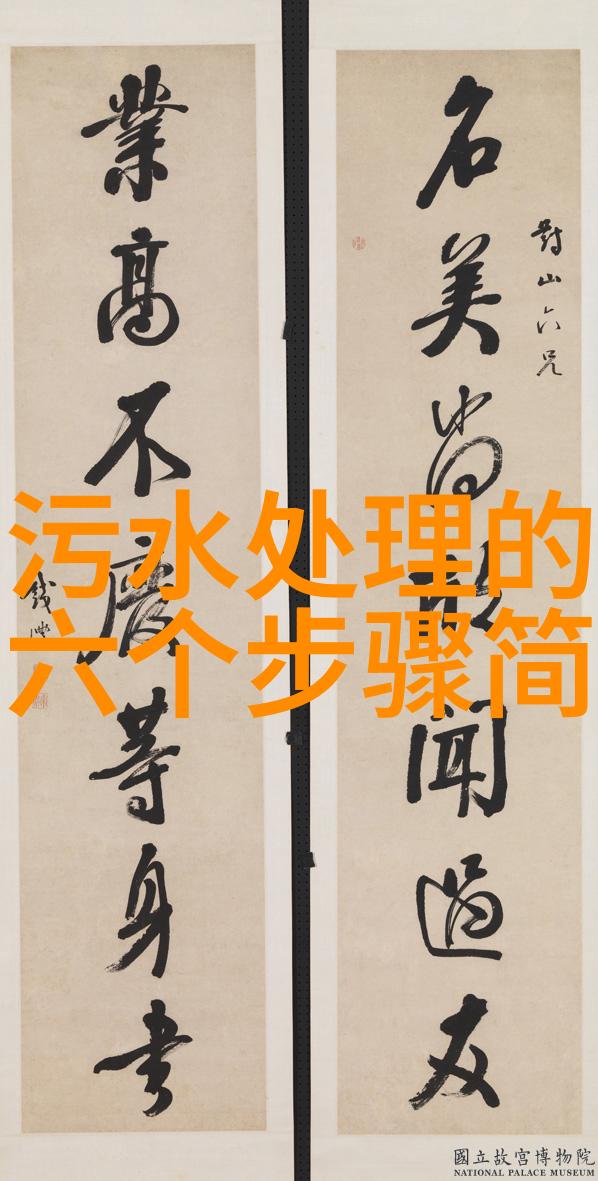 污水处理的
六个步骤简
對山六兄
名美尚聞過友
業高不廢等身書
國立故宮博物院
NATIONAL PALACE MUSEUM